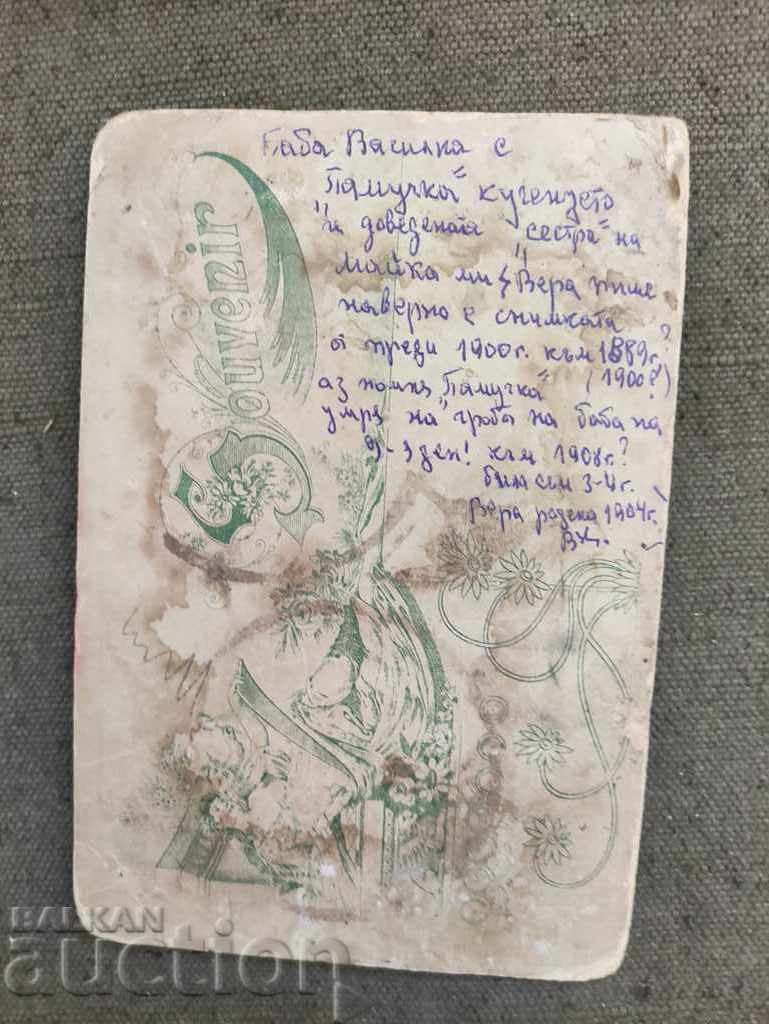 Баба Василка с
"Памучка" кученцето
и доведената "сестра" на
майка ми Вера
наверно е снимката
от преди 1900г. към 1889г.?
(1900?)
аз помня "Памучка"
умря на гроба на баба на
ден! към 1908г.?
била съм 3-4г.
Вера родена 1904г.
ВХ.
Souvenir
BALKAN
auction